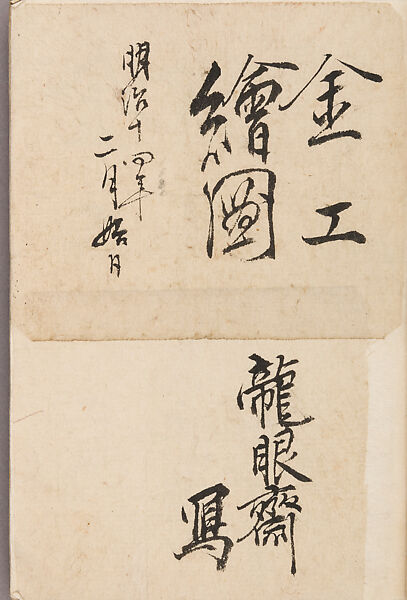 金工
繪圖
明治十四年
二月始月
龍眼齋
寫